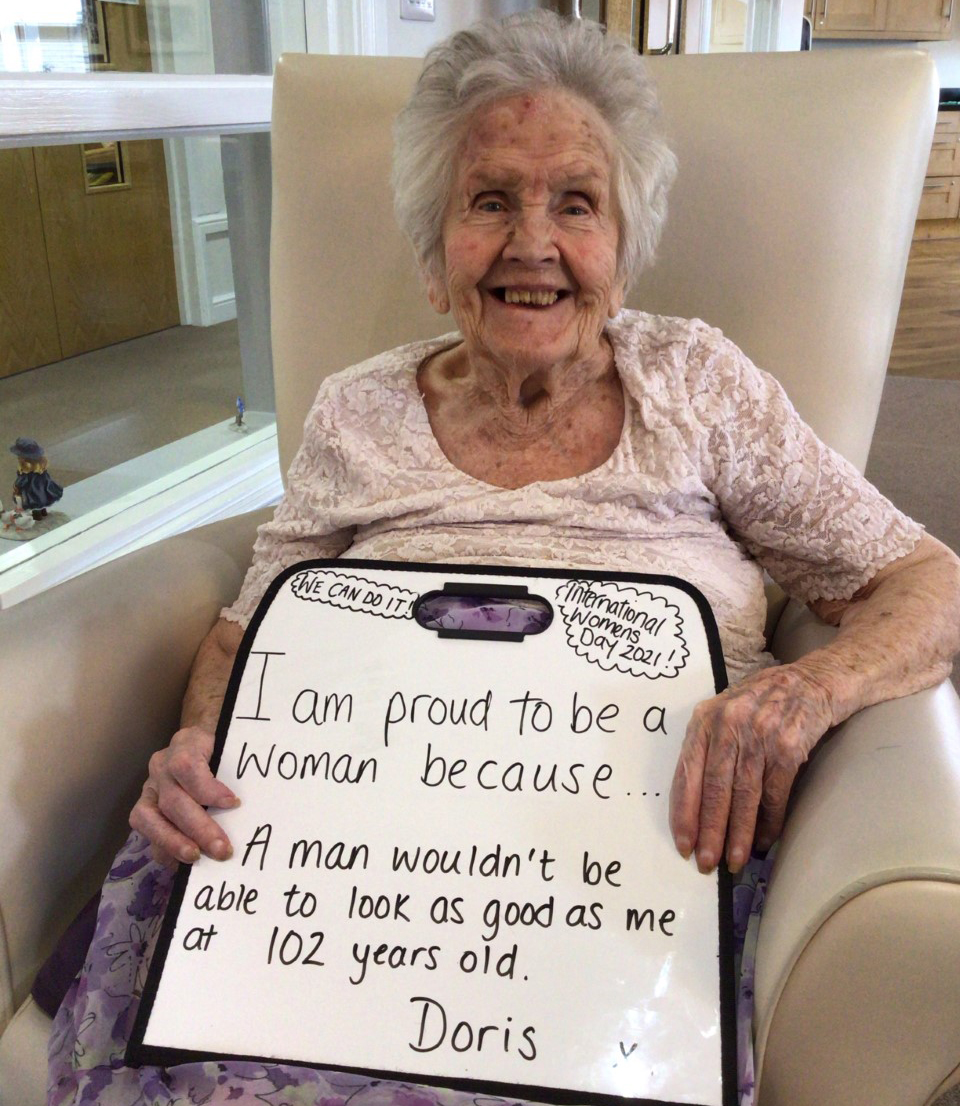 WE CAN DO IT!
International
Womens
Day 2021!
I am proud to be a
Woman because...
A man wouldn't be
able to look as good as me
at 102 years old.
Doris